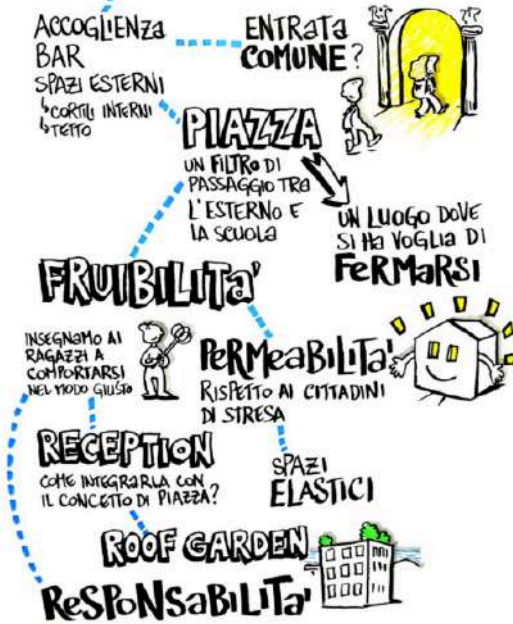 ACCOGLIENZA
BAR
SPAZI ESTERNI
↳CORTILI INTERNI
↳TETTO
ENTRATA
COMUNE?
PIAZZA
UN FILTRO DI
PASSAGGIO TRA
L'ESTERNO E
LA SCUOLA
UN LUOGO DOVE
SI HA VOGLIA DI
FERMARSI
FRUIBILITA'
INSEGNAMO AI
RAGAZZI A
COMPORTARSI
NEL MODO GIUSTO
PERMEABILITA'
RISPETTO AI CITTADINI
DI STRESA
RECEPTION
COME INTEGRARLA CON
IL CONCETTO DI PIAZZA?
SPAZI
ELASTICI
ROOF GARDEN
RESPONSABILITA'